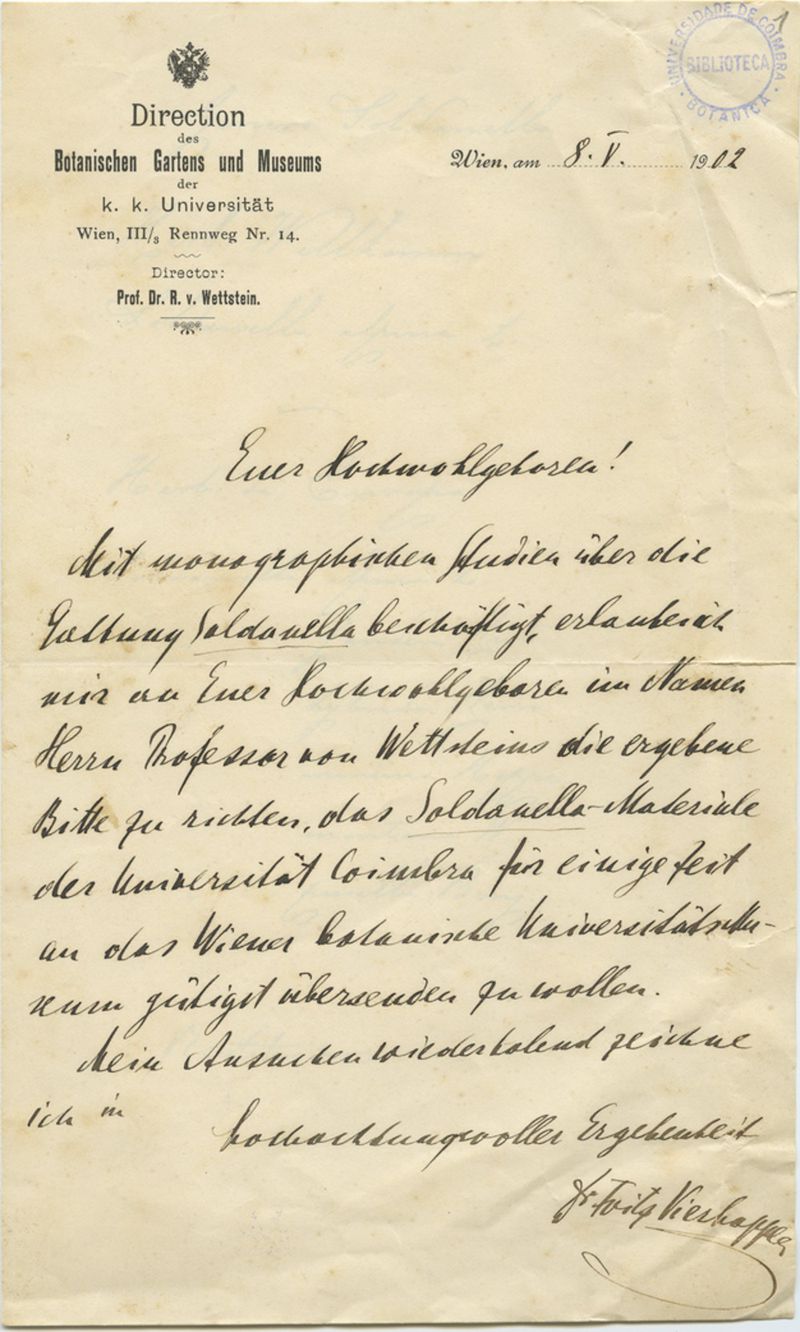 Direction
des
Botanischen Gartens und Museums
der
k. k. Universität
Wien, III/3 Rennweg Nr. 14.
Director:
Prof. Dr. R. v. Wettstein.
UNIVERSIDADE DE COIMBRA
BIBLIOTECA
BOTANICA
1
Wien, am 8. V. 1902
Euer Hochwohlgeboren!
Mit monographischen Studien über die
Gattung Soldanella beschäftigt, erlaube ich
mir an Euer Hochwohlgeboren im Namen
Herrn Professor von Wettsteins die ergebene
Bitte zu richten, das Soldanella-Materiale
der Universität Coimbra für einige Zeit
an das Wiener botanische Universitätsmu-
seum gütigst übersenden zu wollen.
Mein Ansuchen wiederholend zeichne
ich in
hochachtungsvoller Ergebenheit
Dr. Fritz Vierhapper